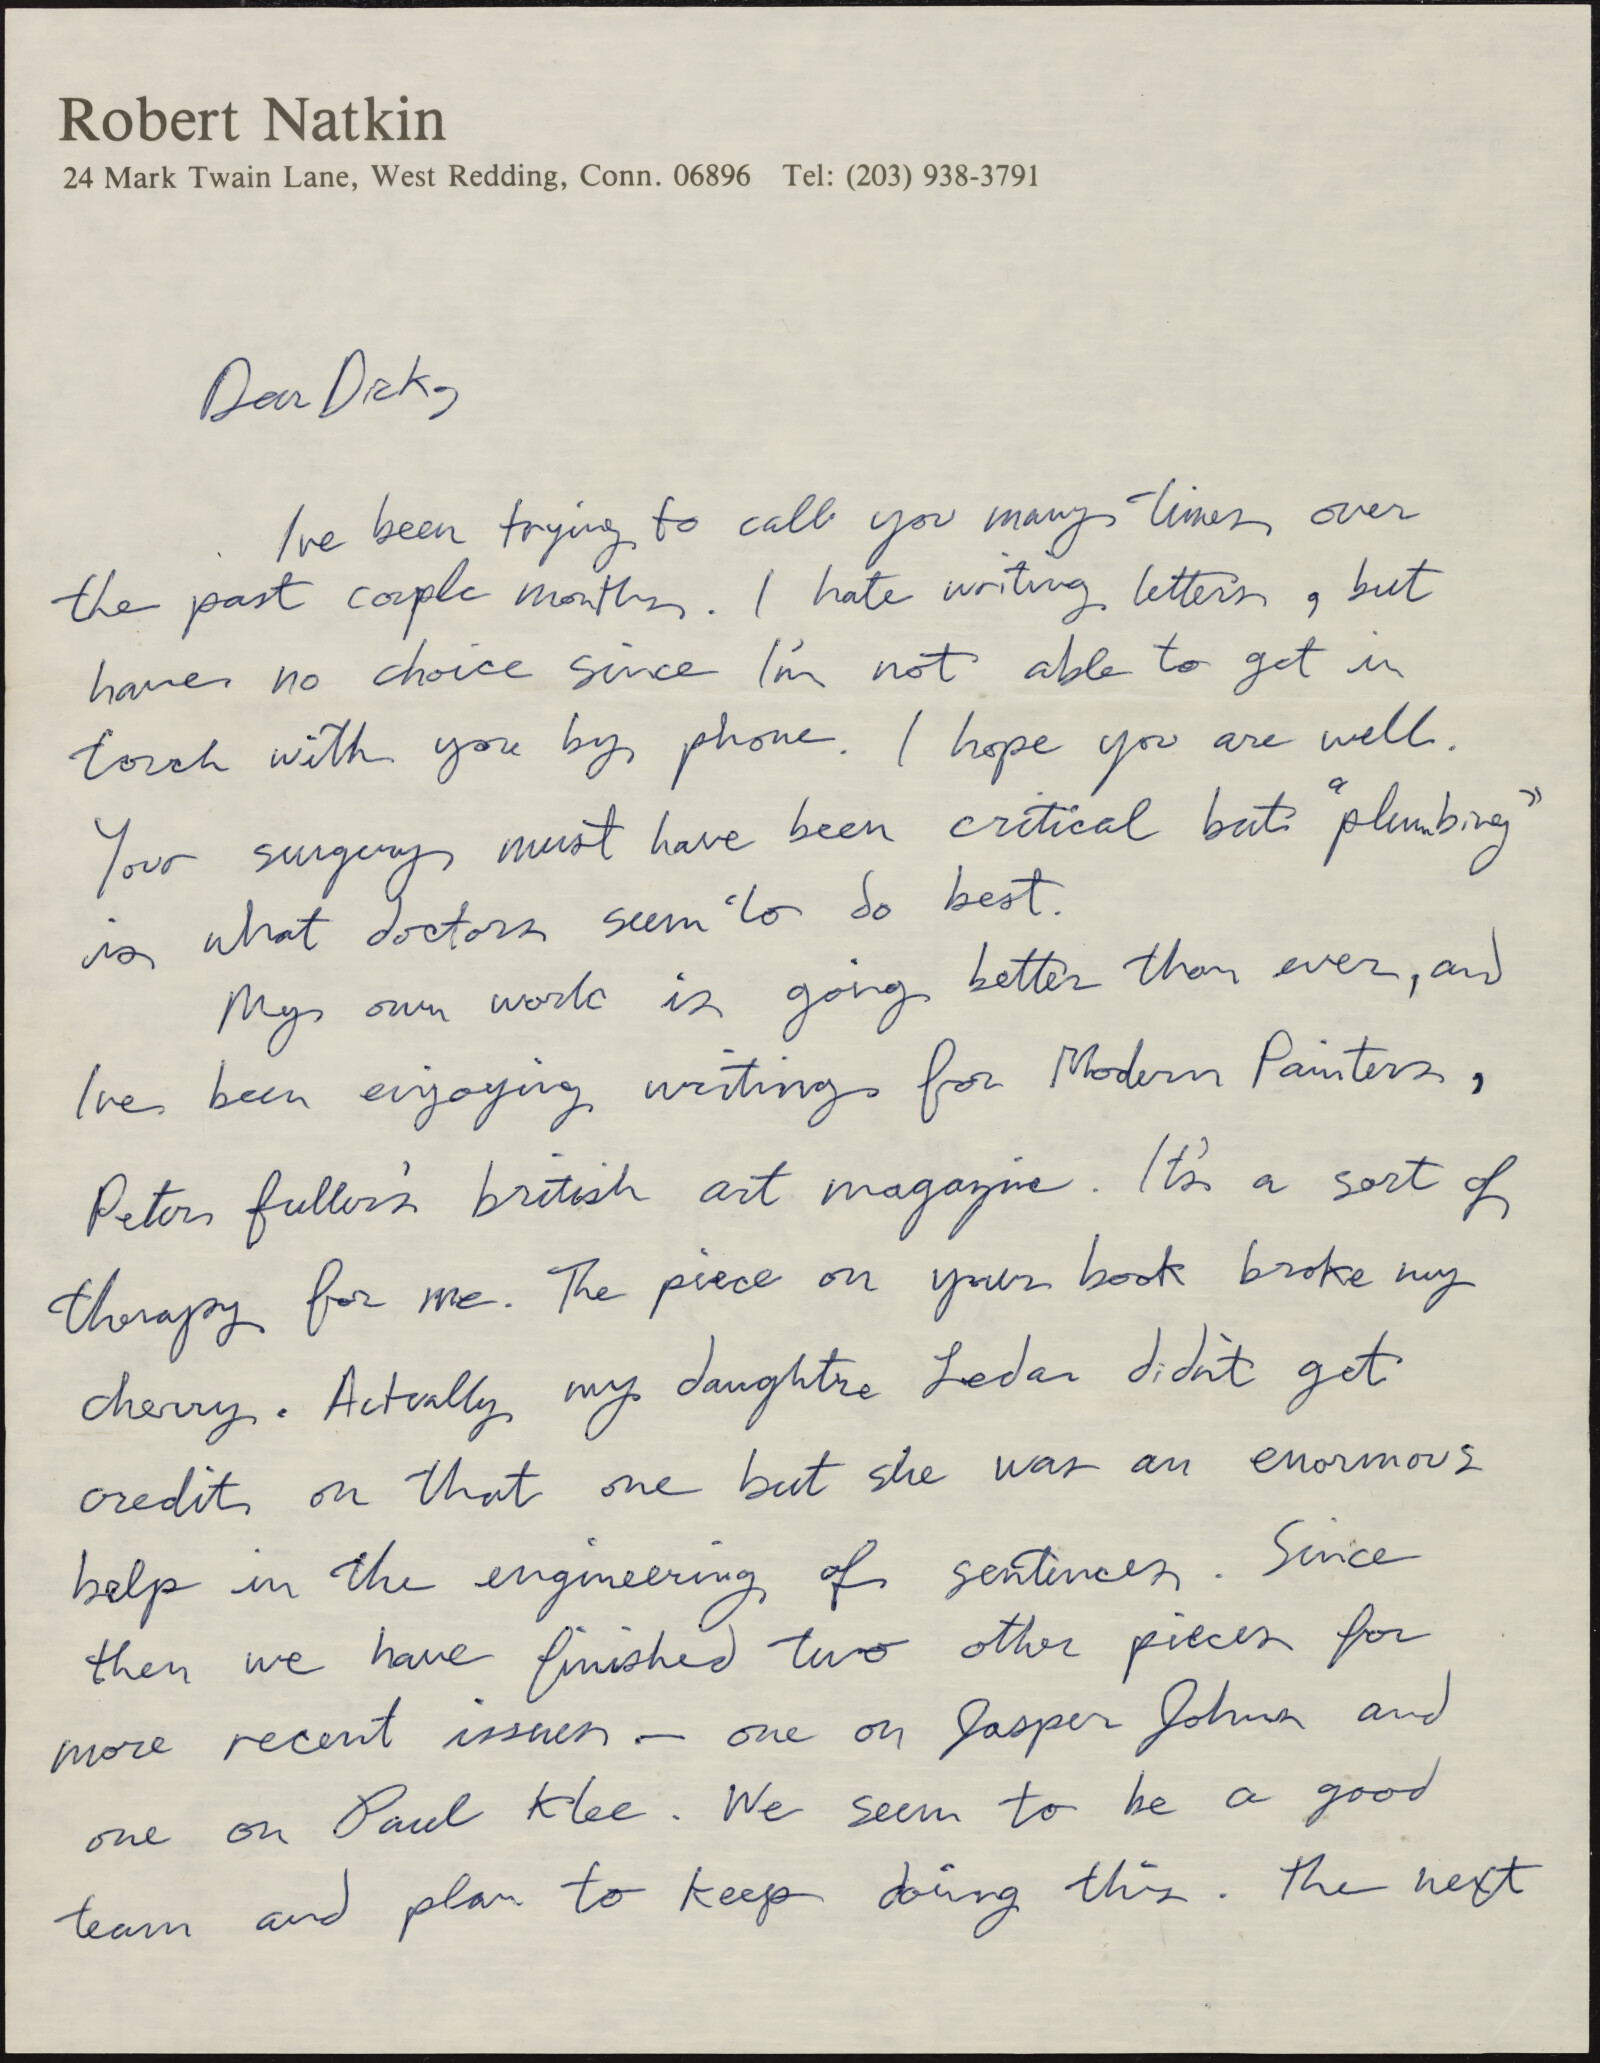 Robert Natkin
24 Mark Twain Lane, West Redding, Conn. 06896 Tel: (203) 938-3791
Dear Dick,
I've been trying to call you many times over
the past couple months. I hate writing letters, but
have no choice since I'm not able to get in
touch with you by phone. I hope you are well.
Your surgery must have been critical but "plumbing"
is what doctors seem to do best.
My own work is going better than ever, and
I've been enjoying writing for Modern Painters,
Peter fuller's british art magazine. It's a sort of
therapy for me. The piece on your book broke my
cherry. Actually my daughtre Leda didn't get
credit on that one but she was an enormous
help in the engineering of sentences. Since
then we have finished two other pieces for
more recent issues – one on Jasper Johns and
one on Paul Klee. We seem to be a good
team and plan to keep doing this. The next